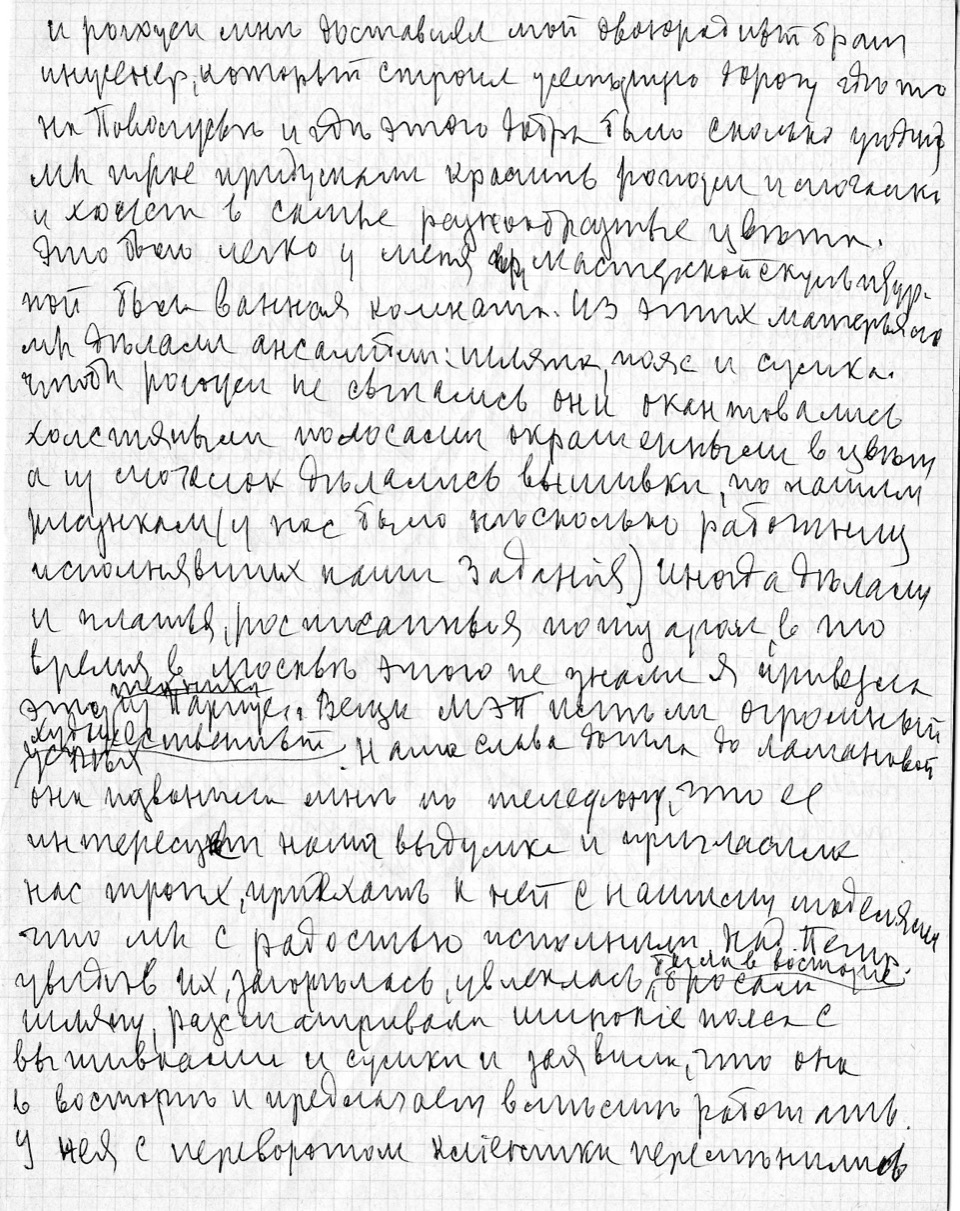 и рогожи мнѣ доставлял мой двоюродный брат
инженер, который строил желѣзную дорогу гдѣ то
на Поволжьѣ и гдѣ этого добра было сколько угодно
мы трое придумали красить рогожи и мочалки
и холст в самые разнообразные цвѣта.
Это было легко у меня при мастерской скульптур-
ной была ванная комната. Из этих матерьялов
мы дѣлали ансамбли: шляпа, пояс и сумка.
чтобы рогожи не сыпались они окантовались
холстяными полосами окрашенными в цвѣт
а из мочалок дѣлались вышивки, по нашим
рисункам (у нас было нѣсколько работниц
исполнявших наши задания) Иногда дѣлали
и платья, росписанныя по туарам, в то
время в Москвѣ этого не знали я привезла
эту технику из Парижа. Вещи МЭП имѣли огромный
художественный
успѣх. Наша слава дошла до Ламановой
она позвонила мнѣ по телефону, что ее
интересует наша выдумка и пригласила
нас троих, приѣхать к ней с нашими моделями
что мы с радостью исполнили, Над. Петр.
увидѣв их, загорѣлась, увлеклась, была в восторге
бросала
шляпы, разсматривала широкіе пояса с
вышивками и сумки и заявила, что она
в восторгѣ и предлагает вмѣстѣ работать.
У нея с переворотом клиентки перемѣнились